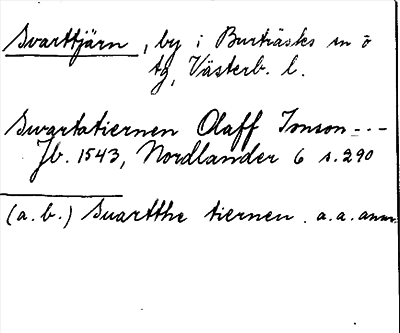 Svarttjärn, by i Burträsks sn ö
tg, Västerb. l.
Swartatiernen Olaff Jonson - - -
Jb. 1543, Nordlander 6 s. 290
(a. b.) Suartthe tiernen. a. a. anm.